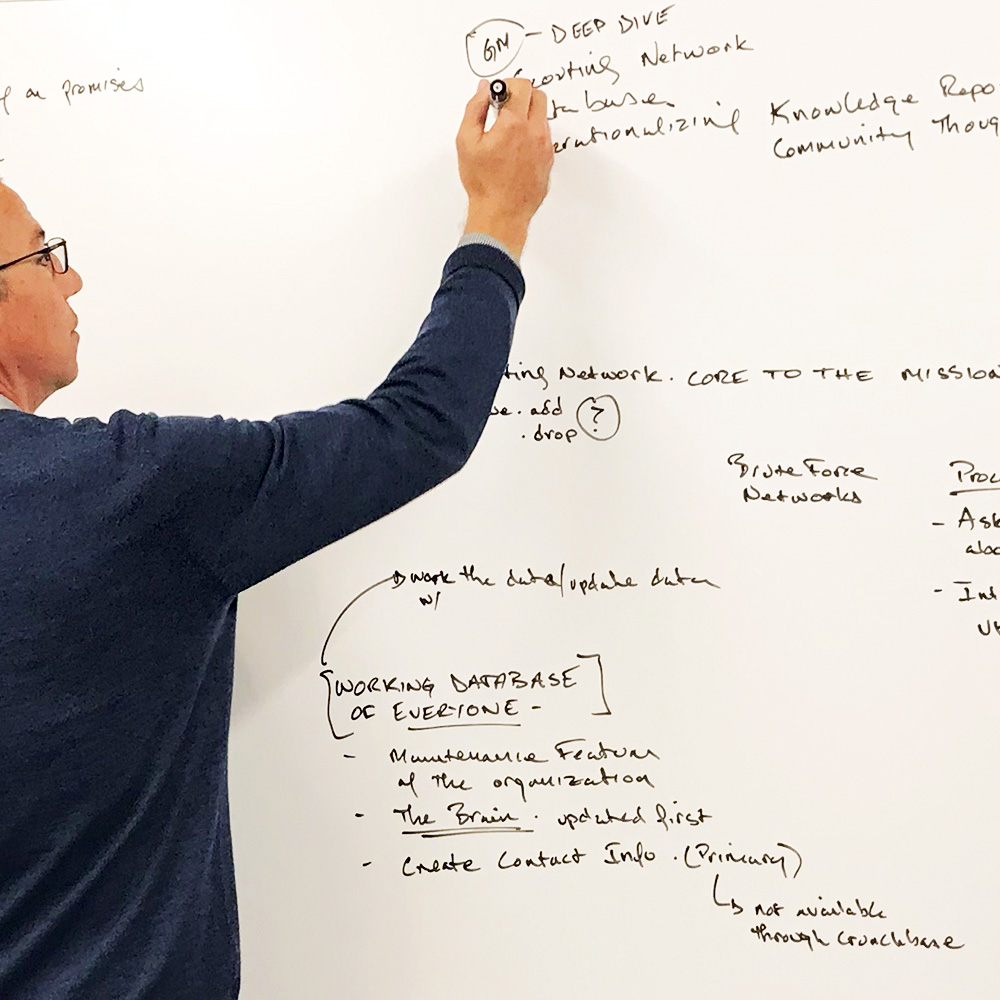 on promises
GM - DEEP DIVE
Scouting Network
tabases
erationalizing Knowledge Repo
Community Thoug
ting Network. CORE TO THE MISSION
ve. add
. drop ?
Brute Force
Networks
Proc
- Ask
- Int
work the data/update data
w/
[WORKING DATABASE
OF EVERYONE -]
- Maintenance Feature
of the organization
- The Brain . updated first
- Create Contact Info . (Primary)
not available
through crunchbase